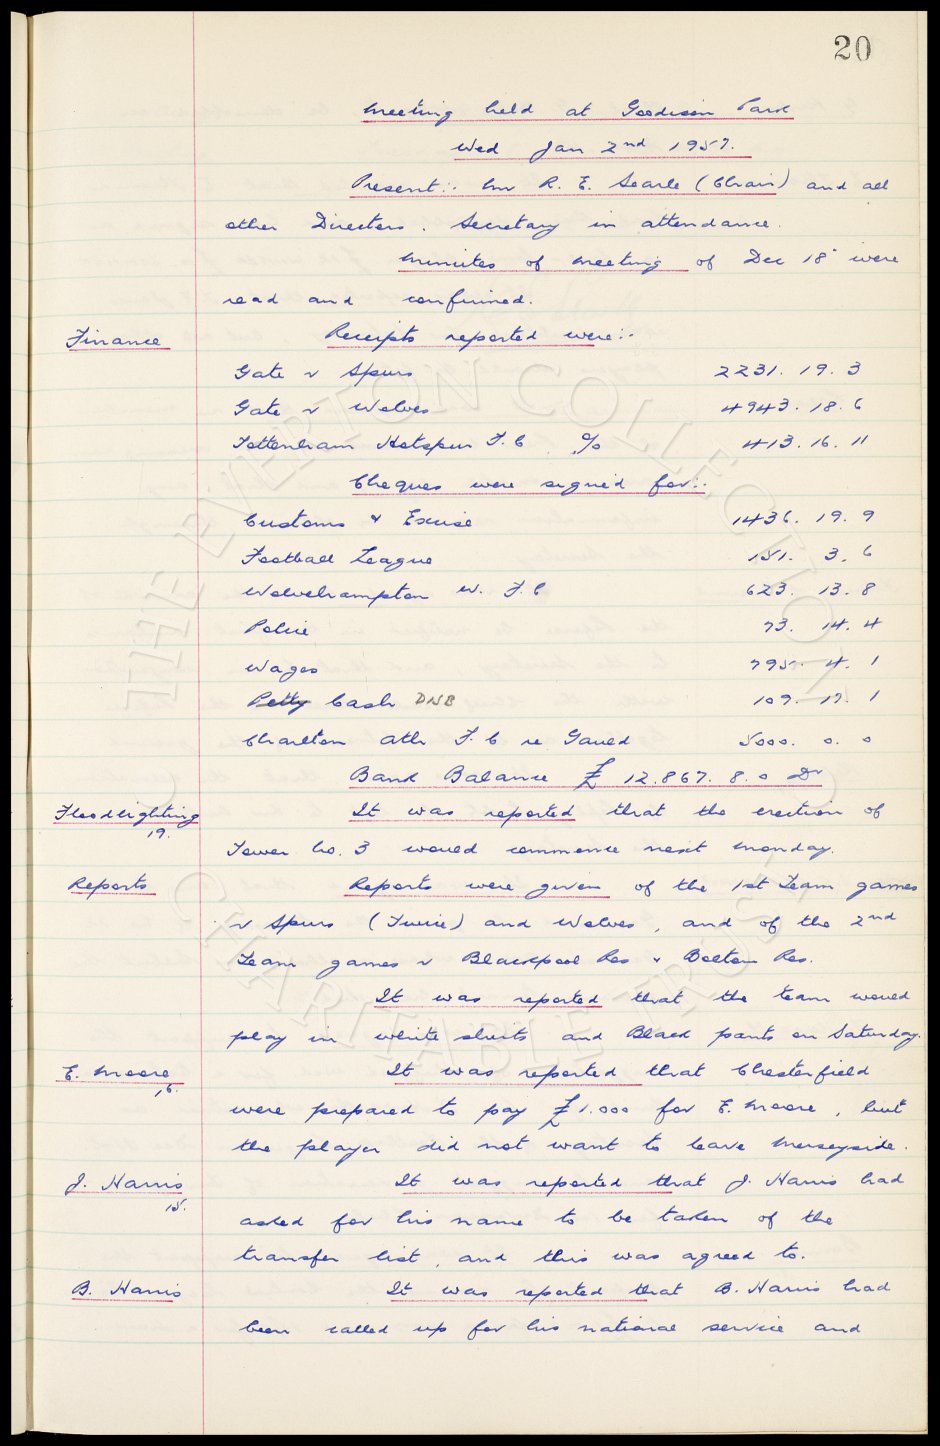 20
Meeting held at Goodison Park
Wed Jan 2nd 1957.
Present:- Mr R. E. Searle (Chair) and all
other Directors. Secretary in attendance.
Minutes of meeting of Dec 18" were
read and confirmed.
Finance Receipts reported were:-
Gate v Spurs 2231. 19. 3
Gate v Wolves 4943. 18. 6
Tottenham Hotspur F.C % 413. 16. 11
Cheques were signed for:-
Customs & Excise 1436. 19. 9
Football League 151. 3. 6
Wolverhampton W. F.C 623. 13. 8
Police 73. 14. 4
Wages 795. 4. 1
Petty Cash DNB 109. 17. 1
Charlton Ath F.C re Gauld 5000. 0. 0
Bank Balance £12.867. 8. 0 Dr
Floodlighting 19. It was reported that the erection of
Tower No. 3 would commence next Monday.
Reports Reports were given of the 1st Team games
v Spurs (Twice) and Wolves, and of the 2nd
Team games v Blackpool Res & Bolton Res.
It was reported that the team would
play in white shirts and Black pants on Saturday.
E. Moore 16. It was reported that Chesterfield
were prepared to pay £1.000 for E. Moore, but
the player did not want to leave Merseyside.
J. Harris 15. It was reported that J. Harris had
asked for his name to be taken of the
transfer list, and this was agreed to.
B. Harris It was reported that B. Harris had
been called up for his national service and
THE EVERTON COLLECTION
CHARITABLE TRUST